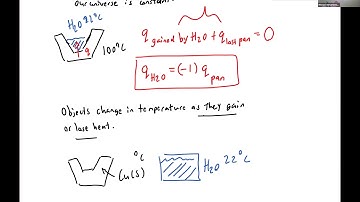 Our universe is constant
H₂O 22°C
100°C
q
q gained by H₂O + q lost pan = 0
q H₂O = (-1) q pan
Objects change in temperature as they gain
or lose heat.
°C
Cu(s)
H₂O 22°C